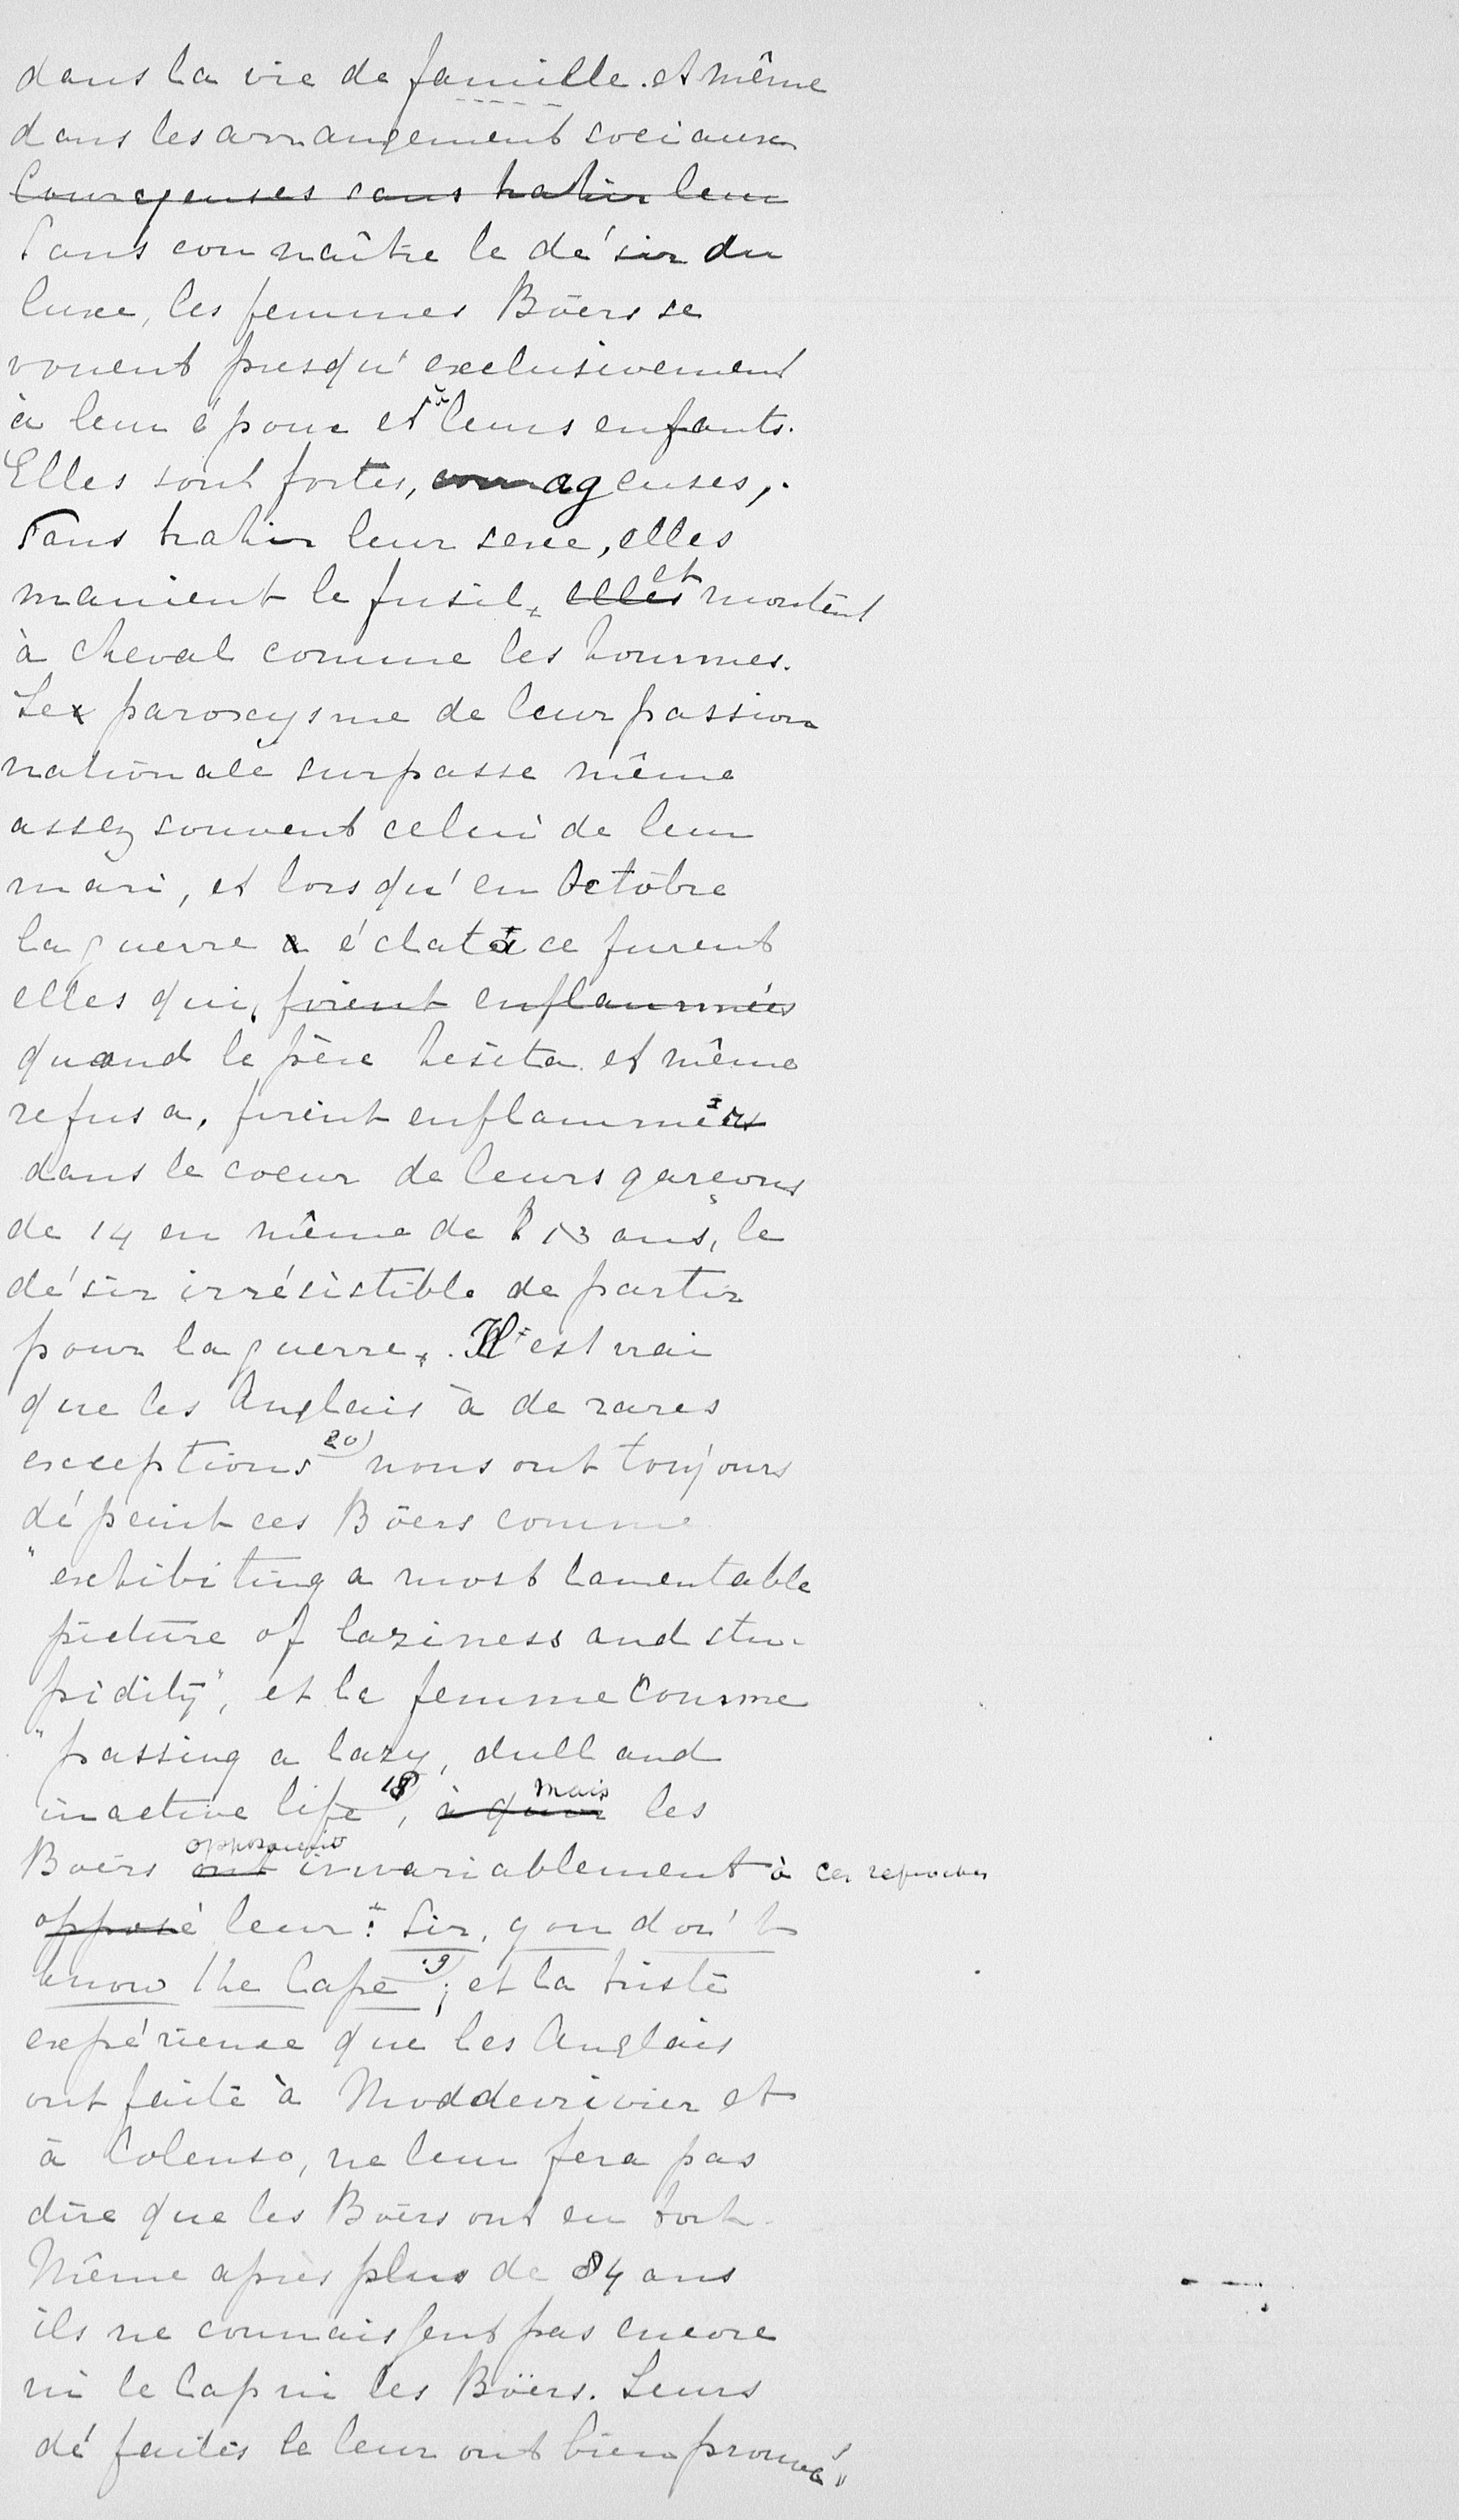 dans la vie de famille. et même
dans les arrangement sociaux
Courageuses sans trahir leur
Sans connaître le désir du
luxe, les femmes Böers se
vouent presqu'exclusivement
à leur époux et à leurs enfants.
Elles sont fortes, courageuses,.
Sans trahir leur sexe, elles
manient le fusil, elles et montent
à cheval comme les hommes.
Le paroxysme de leur passion
nationale surpasse même
assez souvent celui de leur
mari, et lorsqu'en Octobre
la guerre a éclata ce furent
elles qui, firent enflammées
quand le père hésita et même
refusa, firent enflammer
dans le coeur de leurs garçons
de 14 en même de 13 ans, le
désir irrésistible de partir
pour la guerre. Il est vrai
que les Anglais à de rares
exceptions 20) nous ont toujours
dépeint ces Böers comme
"exhibiting a most lamentable
picture of laziness and stu-
pidity", et la femme comme
"passing a lazy, dull and
inactive life 18), à quoi mais les
Boërs ont opposaient invariablement à ces reproches
opposé leur: Sir, you don't
know the Cape 19); et la triste
expérience que les Anglais
ont faite à Modderrivier et
à Colenso, ne leur fera pas
dire que les Boërs ont eu tort.
Même après plus de 84 ans
ils ne connaissent pas encore
ni le Cap ni les Böers. Leurs
défaites le leur ont bien prouvé"